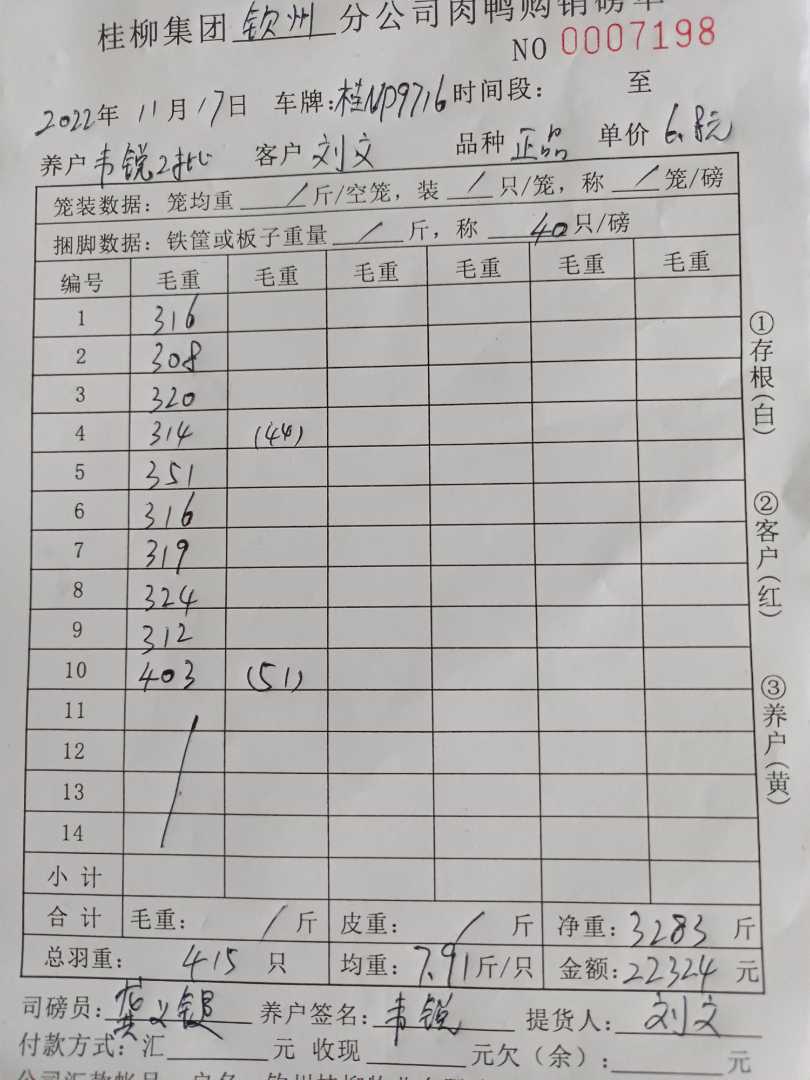 桂柳集团 钦州 分公司肉鸭购销磅单
NO 0007198
2022年 11月17日 车牌:桂NP9716 时间段: 至
养户 韦锐2批 客户 刘文 品种 正品 单价 6.8元
笼装数据：笼均重 / 斤/空笼，装 / 只/笼，称 / 笼/磅
捆脚数据：铁筐或板子重量 / 斤，称 40只/磅
编号 毛重 毛重 毛重 毛重 毛重 毛重
1 316
2 308
3 320
4 314 (44)
5 351
6 316
7 319
8 324
9 312
10 403 (51)
11
12
13
14
小计
合计 毛重: / 斤 皮重: / 斤 净重: 3283 斤
总羽重: 415 只 均重: 7.91斤/只 金额: 22324 元
司磅员: 养户签名: 韦锐 提货人: 刘文
付款方式: 汇 元 收现 元欠（余）: 元
①存根(白)
②客户(红)
③养户(黄)